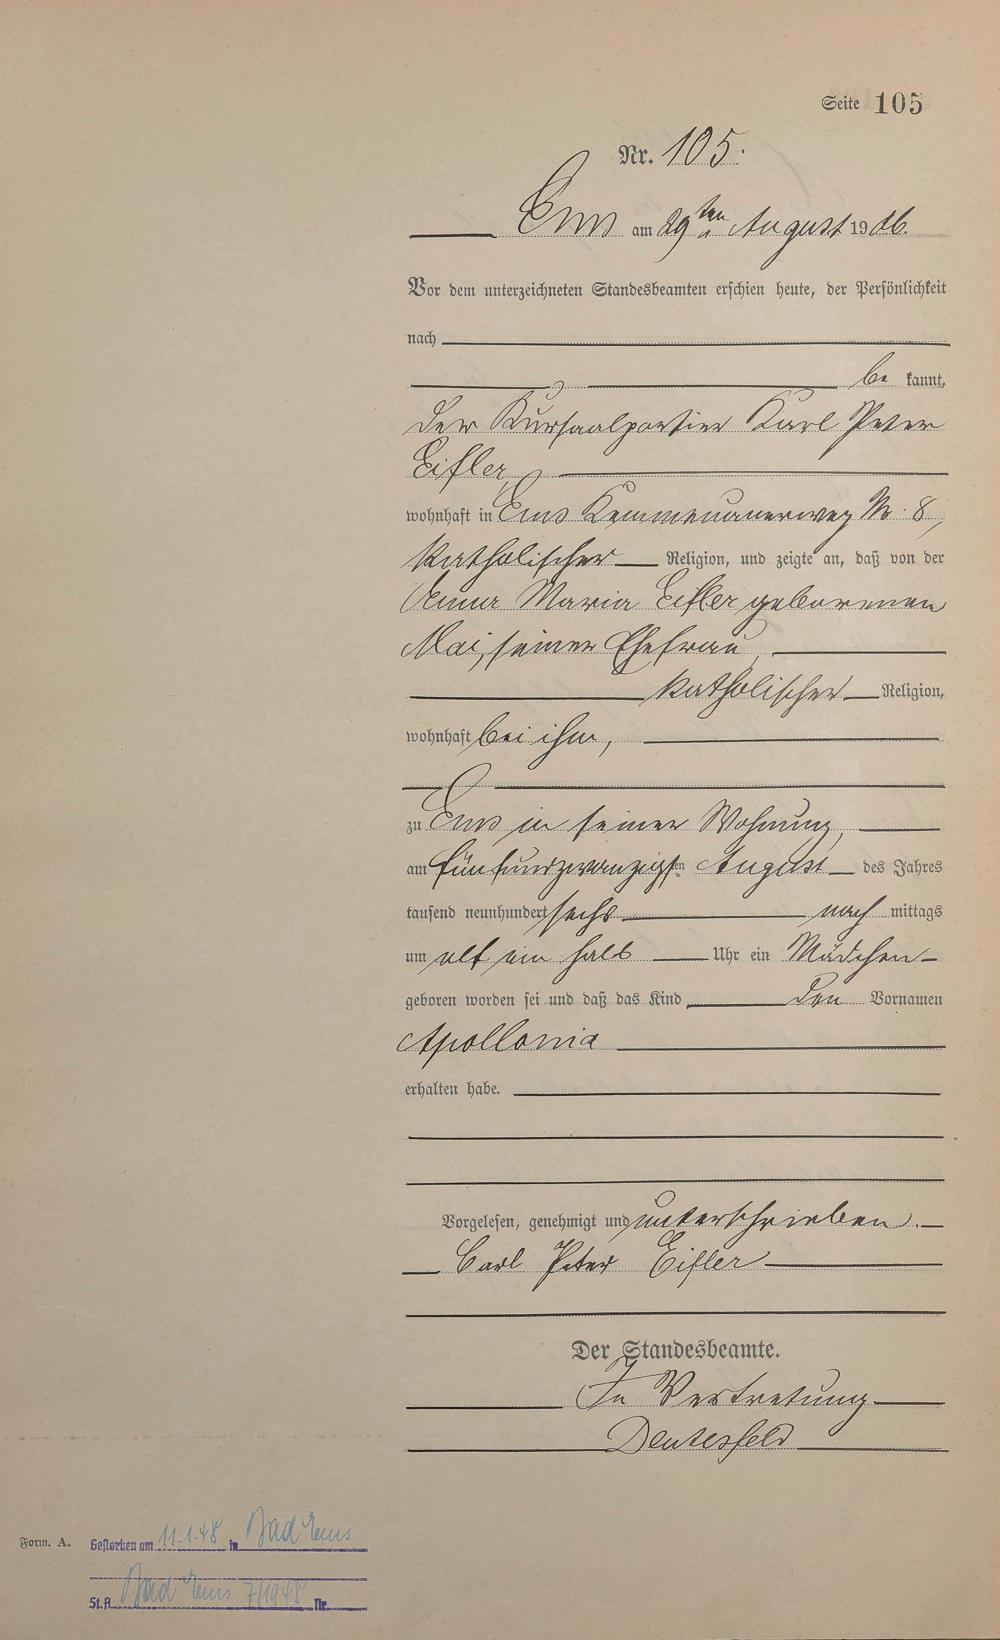 Seite 105
Nr. 105.
Ems am 29ten August 1906.
Vor dem unterzeichneten Standesbeamten erschien heute, der Persönlichkeit
nach
be kannt,
der Kursaalportier Karl Peter
Eifler,
wohnhaft in Ems Kemmenauerweg Nr. 8,
katholischer Religion, und zeigte an, daß von der
Anna Maria Eifler geborenen
Mai, seiner Ehefrau,
katholischer Religion,
wohnhaft bei ihm,
zu Ems in seiner Wohnung,
am fünfundzwanzigsten August des Jahres
tausend neunhundert sechs nach mittags
um elf ein halb Uhr ein Mädchen
geboren worden sei und daß das Kind den Vornamen
Apollonia
erhalten habe.
Vorgelesen, genehmigt und unterschrieben.
Carl Peter Eifler
Der Standesbeamte.
In Vertretung
Form. A. Gestorben am 11.1.48 in Bad Ems
St.A. Bad Ems 7/1948 Nr.